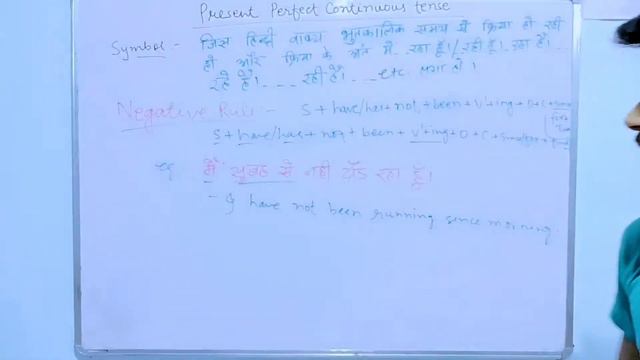 Present Perfect Continuous tense
Symbol - जिस हिन्दी वाक्य भुतकालिक समय से क्रिया हो रही
हो और क्रिया के अंत में रहा हूँ।/रही हूँ। रहा है।
रहे हैं। - - - रही है। - - - etc. लगा हो।
Negative Rule - S + have/has + not + been + V¹ + ing + O + C +
S + have/has + not + been + V¹ + ing + O + C +
eg मैं सुबह से नही दौड़ रहा हूँ।
- I have not been running since morning.